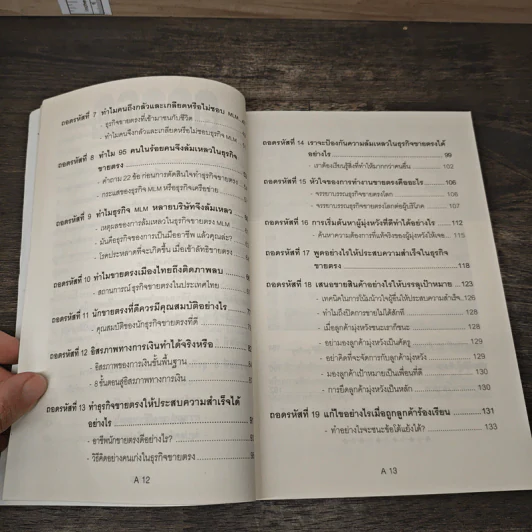 ถอดรหัสที่ 7 ทำไมคนถึงกลัวและเกลียดหรือไม่ชอบ MLM
- ธุรกิจขายตรงที่เข้ามาชนกับชีวิต
- ทำไมคนจึงกลัวและเกลียดหรือไม่ชอบธุรกิจ MLM
ถอดรหัสที่ 8 ทำไม 95 คนในร้อยคนจึงล้มเหลวในธุรกิจ
ขายตรง
- คำถาม 22 ข้อก่อนการตัดสินใจทำธุรกิจขายตรง
กระแสของธุรกิจ MLM หรือธุรกิจเครือข่าย
ถอดรหัสที่ 9 ทำไมธุรกิจ MLM หลายบริษัทจึงล้มเหลว
- เหตุผลของการล้มเหลวในธุรกิจขายตรง MLM
- มันคือธุรกิจของการเป็นมืออาชีพ แล้วคุณล่ะ?
- โรคประหลาดที่จะเกิดขึ้น เมื่อเข้าลัทธิขายตรง
ถอดรหัสที่ 10 ทำไมขายตรงเมืองไทยถึงติดภาพลบ
- สถานการณ์ธุรกิจขายตรงในประเทศไทย
ถอดรหัสที่ 11 นักขายตรงที่ดีควรมีคุณสมบัติอย่างไร
- คุณสมบัติของนักธุรกิจขายตรงที่ดี
ถอดรหัสที่ 12 อิสรภาพทางการเงินทำได้จริงหรือ
- อิสรภาพของการเงินขั้นพื้นฐาน
- 8 ขั้นตอนสู่อิสรภาพทางการเงิน
ถอดรหัสที่ 13 ทำธุรกิจขายตรงให้ประสบความสำเร็จได้
อย่างไร
- อาชีพนักขายตรงดีอย่างไร?
- วิธีคิดอย่างคนเก่งในธุรกิจขายตรง
A 12
ถอดรหัสที่ 14 เราจะป้องกันความล้มเหลวในธุรกิจขายตรงได้
อย่างไร 99
- เราต้องเรียนรู้สิ่งที่ทำให้มากกว่าคนอื่น 102
ถอดรหัสที่ 15 หัวใจของการทำงานขายตรงคืออะไร 106
- จรรยาบรรณธุรกิจขายตรงโลก 106
- จรรยาบรรณธุรกิจขายตรงโลกต่อผู้บริโภค 107
ถอดรหัสที่ 16 การเริ่มต้นหาผู้มุ่งหวังที่ดีทำได้อย่างไร 112
- ค้นหาความต้องการที่แท้จริงของผู้มุ่งหวังให้เจอ
ถอดรหัสที่ 17 พูดอย่างไรให้ประสบความสำเร็จในธุรกิจ
ขายตรง 118
ถอดรหัสที่ 18 เสนอขายสินค้าอย่างไรให้บรรลุเป้าหมาย 123
- เทคนิคในการโน้มน้าวใจผู้อื่นให้ประสบความสำเร็จ 126
- ทำไมถึงปิดการขายไม่ได้สักที 128
- เมื่อลูกค้ามุ่งหวังชนะเราก็ชนะ 128
- อย่ามองลูกค้ามุ่งหวังเป็นศัตรู 129
- อย่าคิดที่จะจัดการกับลูกค้ามุ่งหวัง 129
- มองลูกค้าเป้าหมายเป็นเพื่อนที่ดี 130
- การยึดลูกค้ามุ่งหวังเป็นหลัก 130
ถอดรหัสที่ 19 แก้ไขอย่างไรเมื่อถูกลูกค้าร้องเรียน 131
- ทำอย่างไรจะชนะข้อโต้แย้งได้? 133
A 13